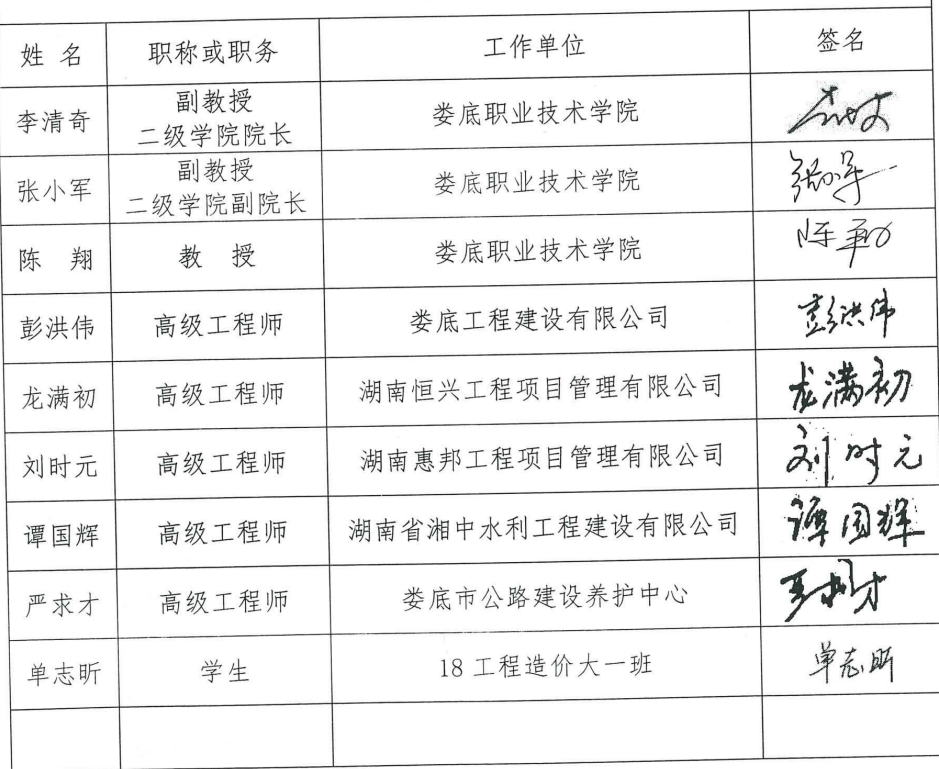 姓 名 职称或职务 工作单位 签名
李清奇 副教授 二级学院院长 娄底职业技术学院
张小军 副教授 二级学院副院长 娄底职业技术学院 张小军
陈 翔 教 授 娄底职业技术学院 陈翔
彭洪伟 高级工程师 娄底工程建设有限公司 彭洪伟
龙满初 高级工程师 湖南恒兴工程项目管理有限公司 龙满初
刘时元 高级工程师 湖南惠邦工程项目管理有限公司 刘时元
谭国辉 高级工程师 湖南省湘中水利工程建设有限公司 谭国辉
严求才 高级工程师 娄底市公路建设养护中心 严求才
单志昕 学生 18 工程造价大一班 单志昕